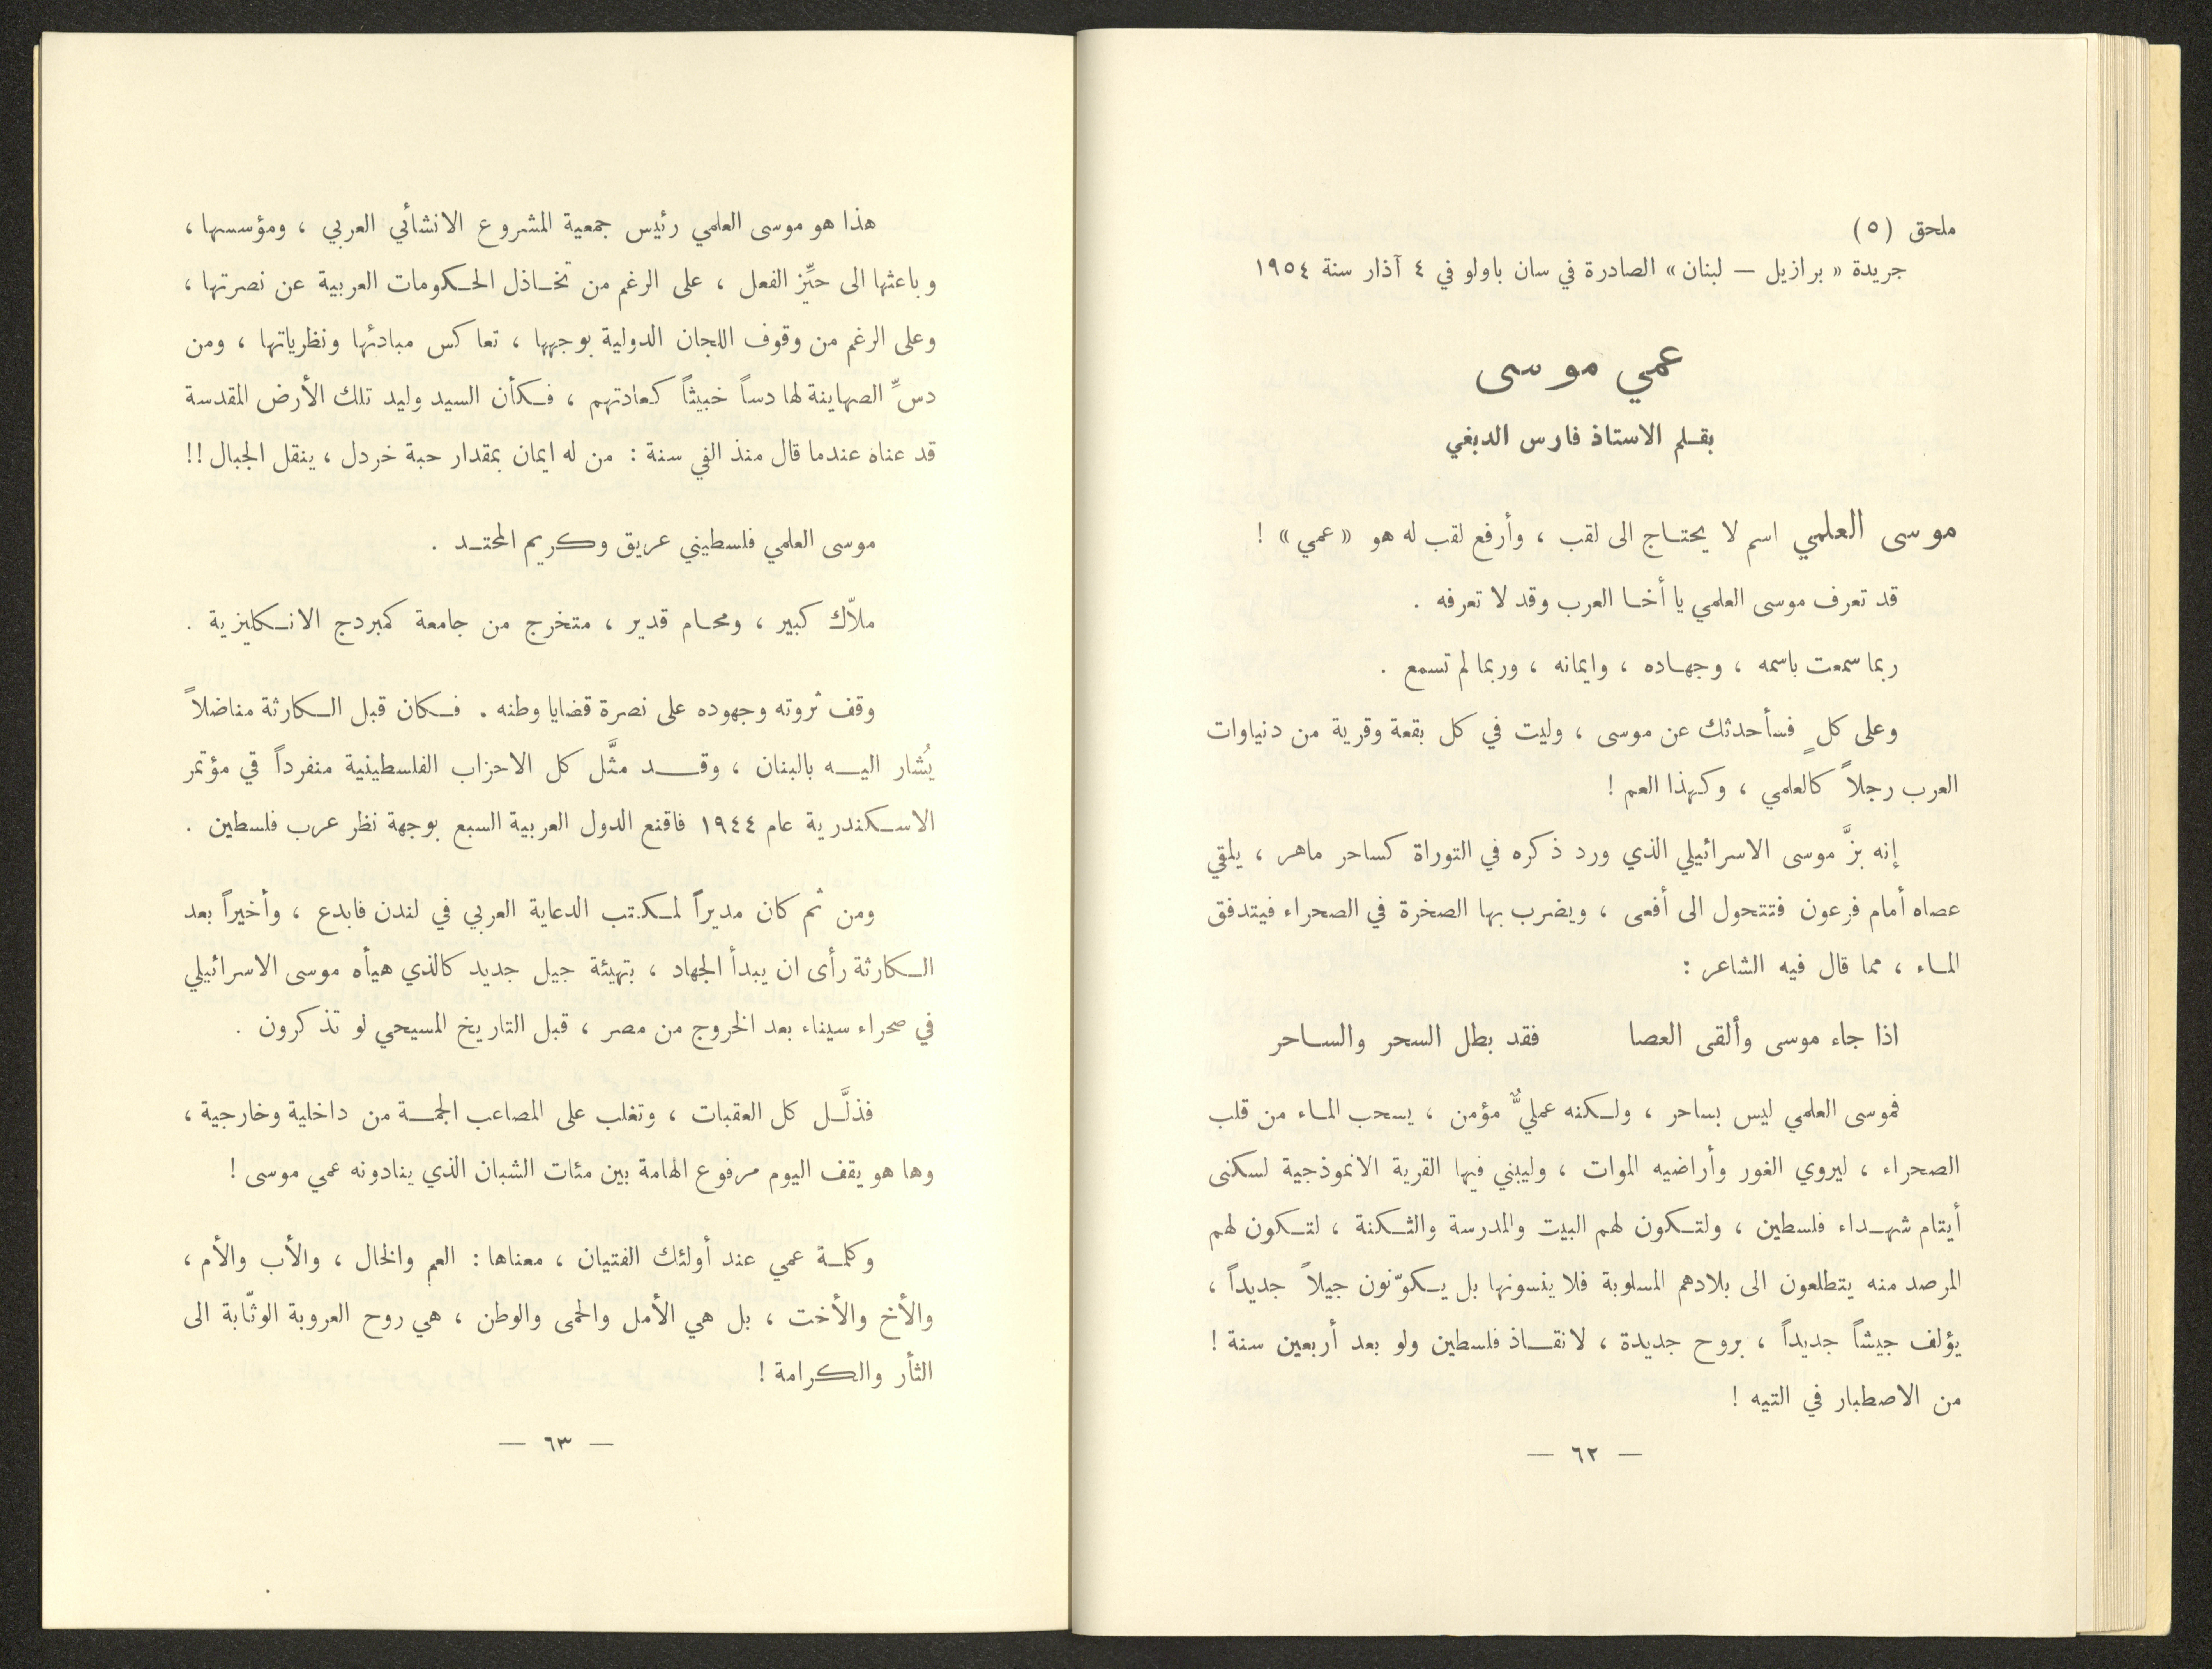 ملحق (٥)
جريدة « برازيل — لبنان » الصادرة في سان باولو في ٤ آذار سنة ١٩٥٤
عمي موسى
بقلم الاستاذ فارس الدبغي
موسى العلمي اسم لا يحتاج الى لقب ، وأرفع لقب له هو « عمي » !
قد تعرف موسى العلمي يا أخا العرب وقد لا تعرفه .
ربما سمعت باسمه ، وجهاده ، وايمانه ، وربما لم تسمع .
وعلى كلٍ فسأحدثك عن موسى ، وليت في كل بقعة وقرية من دنياوات
العرب رجلاً كالعلمي ، وكهذا العم !
إنه بزَّ موسى الاسرائيلي الذي ورد ذكره في التوراة كساحر ماهر ، يلقي
عصاه أمام فرعون فتتحول الى أفعى ، ويضرب بها الصخرة في الصحراء فيتدفق
الماء ، مما قال فيه الشاعر :
اذا جاء موسى وألقى العصا فقد بطل السحر والساحر
فموسى العلمي ليس بساحر ، ولكنه عمليٌّ مؤمن ، يسحب الماء من قلب
الصحراء ، ليروي الغور وأراضيه الموات ، وليبني فيها القرية الانموذجية لسكنى
أيتام شهداء فلسطين ، ولتكون لهم البيت والمدرسة والثكنة ، لتكون لهم
المرصد منه يتطلعون الى بلادهم المسلوبة فلا ينسونها بل يكوّنون جيلاً جديداً ،
يؤلف جيشاً جديداً ، بروح جديدة ، لانقاذ فلسطين ولو بعد أربعين سنة !
من الاصطبار في التيه !
— ٦٢ —
هذا هو موسى العلمي رئيس جمعية المشروع الانشائي العربي ، ومؤسسها ،
وباعثها الى حيِّز الفعل ، على الرغم من تخاذل الحكومات العربية عن نصرتها ،
وعلى الرغم من وقوف اللجان الدولية بوجهها ، تعاكس مبادئها ونظرياتها ، ومن
دسِّ الصهاينة لها دساً خبيثاً كعادتهم ، فكأن السيد وليد تلك الأرض المقدسة
قد عناه عندما قال منذ الفي سنة : من له ايمان بمقدار حبة خردل ، ينقل الجبال !!
موسى العلمي فلسطيني عريق وكريم المحتد .
ملاّك كبير ، ومحام قدير ، متخرج من جامعة كمبردج الانكليزية .
وقف ثروته وجهوده على نصرة قضايا وطنه . فكان قبل الكارثة مناضلاً
يُشار اليه بالبنان ، وقد مثَّل كل الاحزاب الفلسطينية منفرداً في مؤتمر
الاسكندرية عام ١٩٤٤ فاقنع الدول العربية السبع بوجهة نظر عرب فلسطين .
ومن ثم كان مديراً لمكتب الدعاية العربي في لندن فابدع ، وأخيراً بعد
الكارثة رأى ان يبدأ الجهاد ، بتهيئة جيل جديد كالذي هيأه موسى الاسرائيلي
في صحراء سيناء بعد الخروج من مصر ، قبل التاريخ المسيحي لو تذكرون .
فذلَّل كل العقبات ، وتغلب على المصاعب الجمة من داخلية وخارجية ،
وها هو يقف اليوم مرفوع الهامة بين مئات الشبان الذي ينادونه عمي موسى !
وكلمة عمي عند أولئك الفتيان ، معناها : العم والخال ، والأب والأم ،
والأخ والأخت ، بل هي الأمل والحمى والوطن ، هي روح العروبة الوثّابة الى
الثأر والكرامة !
— ٦٣ —